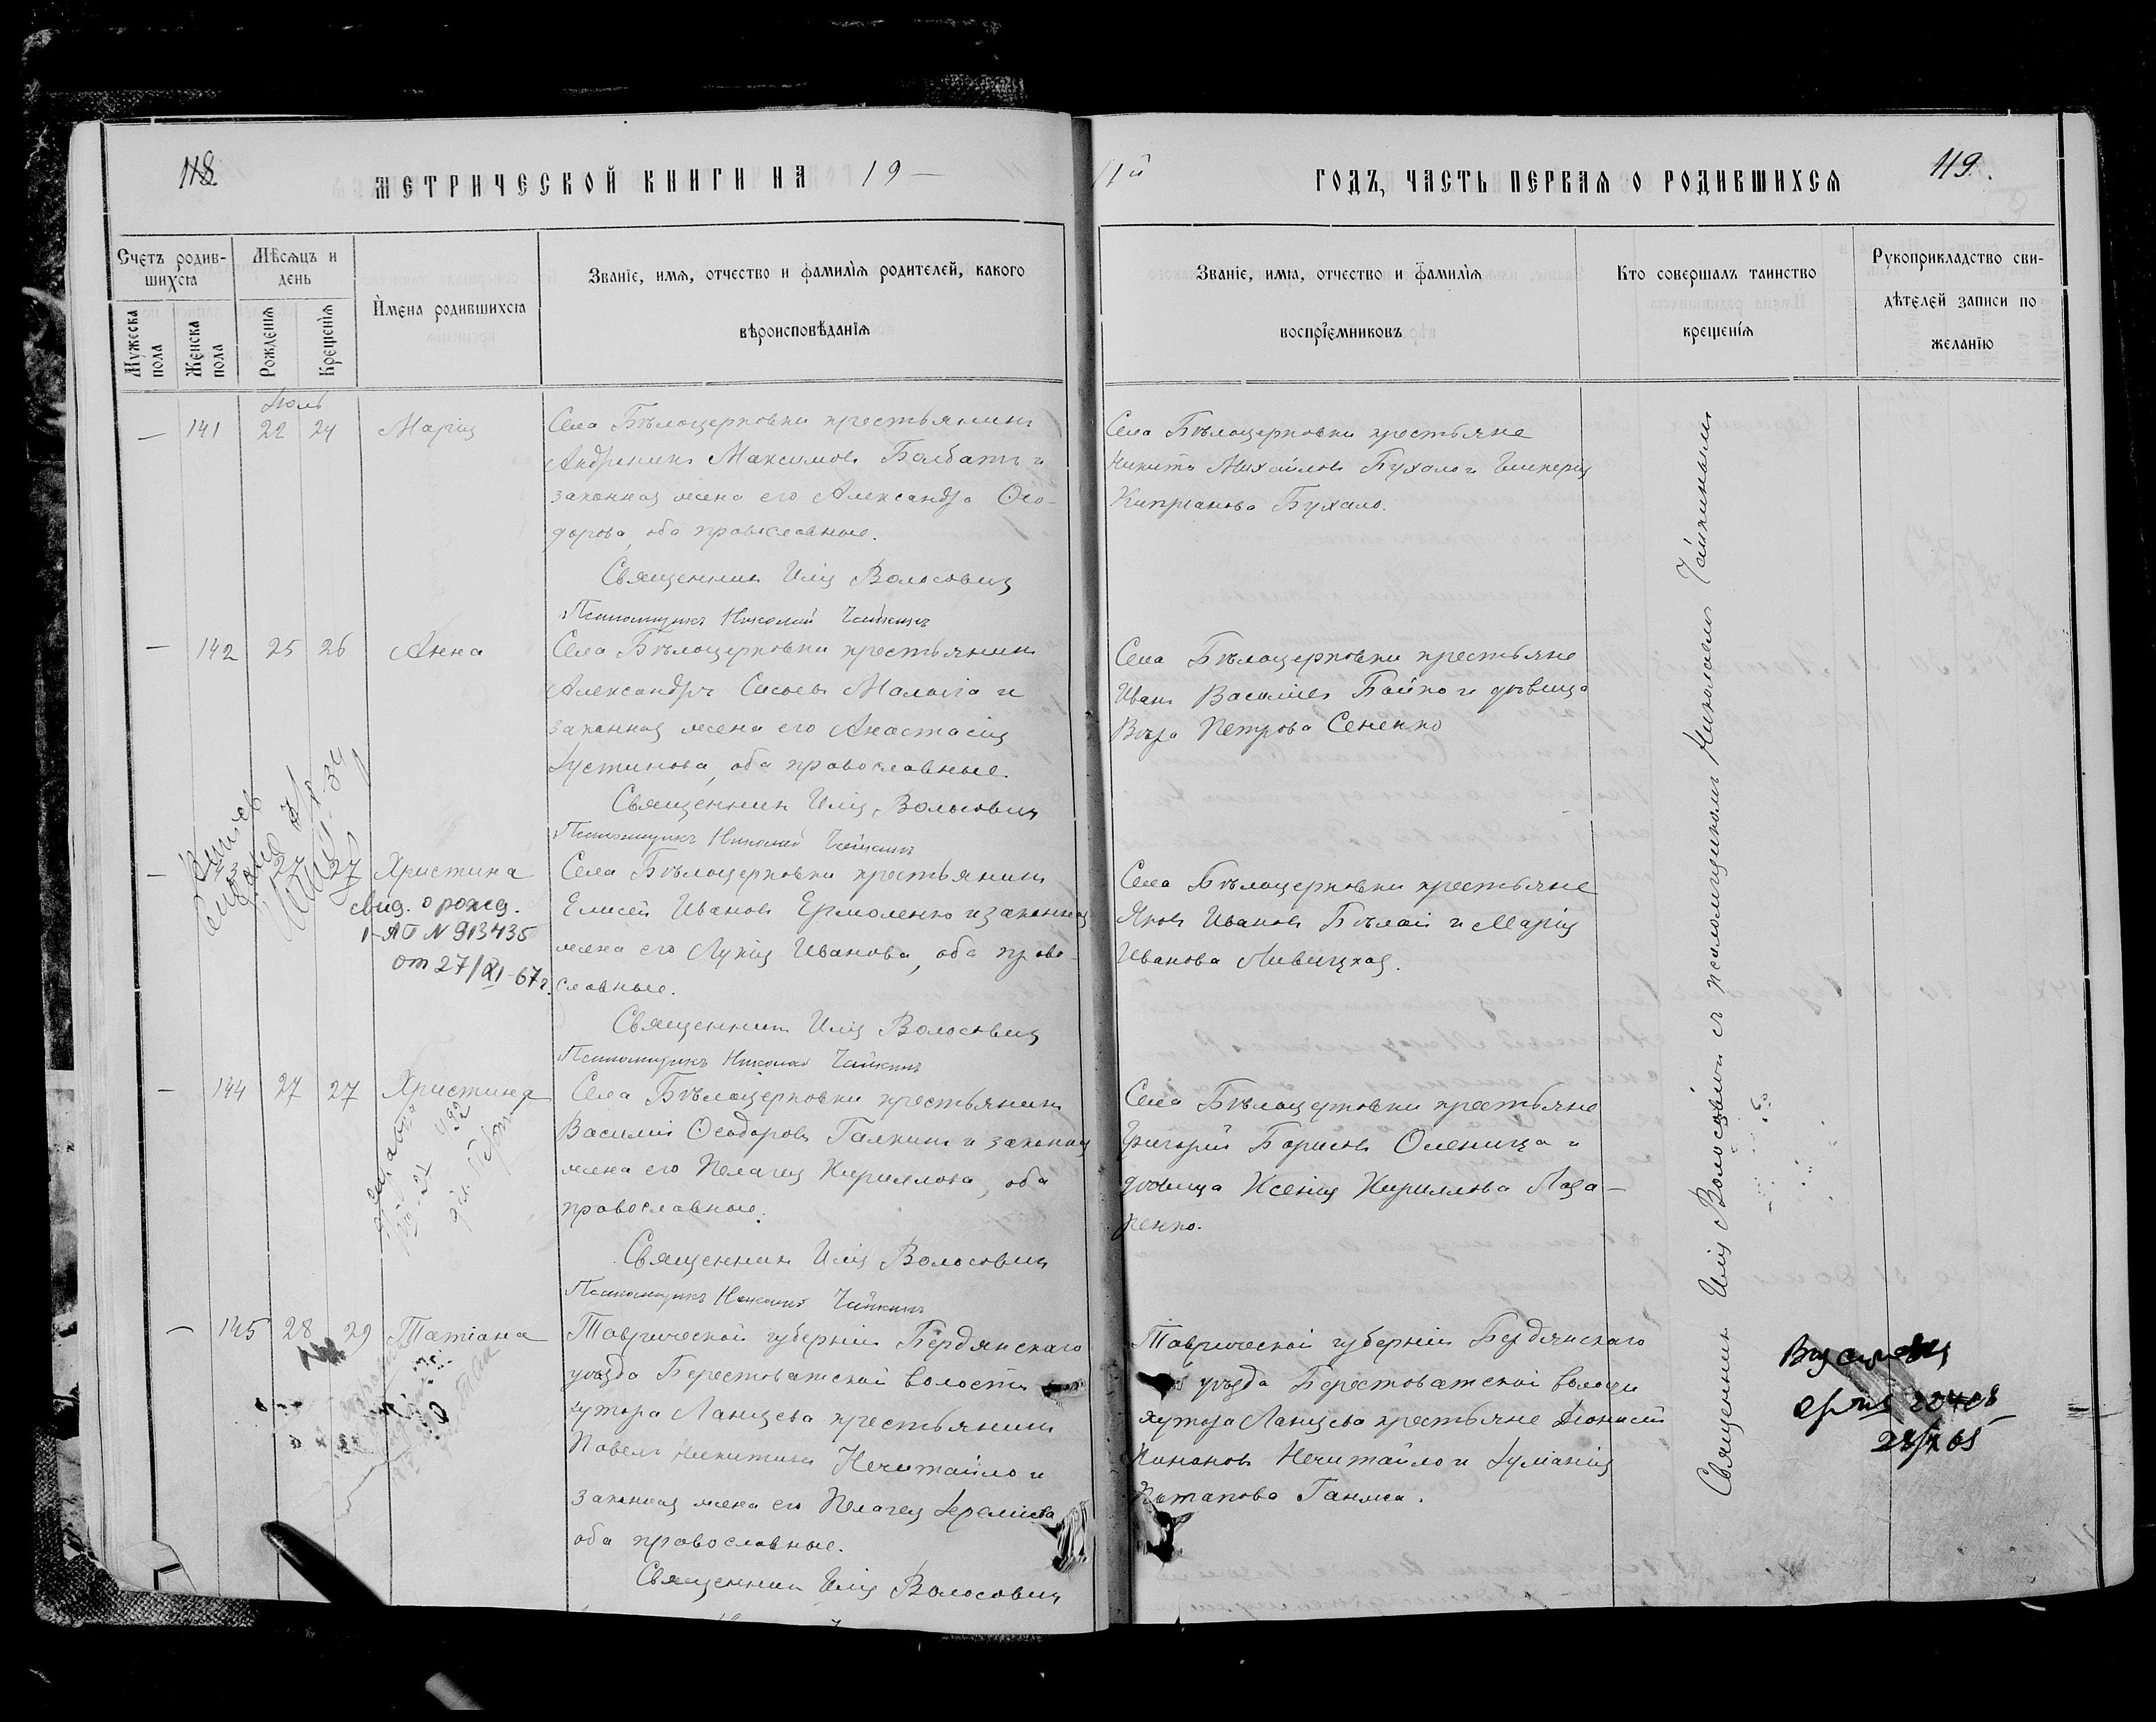 118.
МЕТРИЧЕСКОЙ КНИГИ НА 19 —
Счетъ родив-
шихся
Мѣсяцъ и
день
Мужеска
пола
Женска
пола
Рожденія
Крещенія
Имена родившихся
Званіе, имя, отчество и фамилія родителей, какого
вѣроисповѣданія
Іюль
— 141 22 24 Марія
Села Бѣлоцерковки крестьянинъ
Андроникъ Максимовъ Балбатъ и
законная жена его Александра Ѳео-
дорова, оба православные.
Священникъ Илія Волосовичъ
Псаломщикъ Николай Чайкинъ
— 142 25 26 Анна
Села Бѣлоцерковки крестьянинъ
Александръ Сисоевъ и
законная жена его Анастасія
Іустинова, оба православные.
Священникъ Илія Волосовичъ
Псаломщикъ Николай Чайкинъ
— 143 27 27 Христина
свид. о рожд.
І-АП N 913435
от 27/XI-67 г.
Села Бѣлоцерковки крестьянинъ
Елисей Ивановъ Ермоленко и законная
жена его Лукія Иванова, оба право-
славные.
Священникъ Илія Волосовичъ
Псаломщикъ Николай Чайкинъ
— 144 27 27 Христина
Села Бѣлоцерковки крестьянинъ
Василій Ѳеодоровъ Галкинъ и законная
жена его Пелагія Кириллова, оба
православные.
Священникъ Илія Волосовичъ
Псаломщикъ Николай Чайкинъ
— 145 28 29 Татіана
Таврической губерніи Бердянскаго
уѣзда Берестоватской волости
хутора Ланцева крестьянинъ
Павелъ Никитинъ Нечитайло и
законная жена его Пелагея Іереміева
оба православные.
Священникъ Илія Волосовичъ
11й ГОДЪ, ЧАСТЬ ПЕРВАЯ О РОДИВШИХСЯ
119.
Званіе, имя, отчество и фамилія
воспріемниковъ
Кто совершалъ таинство
крещенія
Рукоприкладство сви-
дѣтелей записи по
желанію
Села Бѣлоцерковки крестьяне
Никита Михайловъ Бухало и Гликерія
Кипріанова Бухало.
Села Бѣлоцерковки крестьяне
Иванъ Василіевъ Бойко и дѣвица
Вѣра Петрова Сененко
Села Бѣлоцерковки крестьяне
Яковъ Ивановъ Бѣлай и Марія
Иванова Ливицкая.
Села Бѣлоцерковки крестьяне
Григорій Борисовъ Оленица и
дѣвица Ксенія Кириллова Лаза-
ренко.
Таврической губерніи Бердянскаго
уѣзда Берестоватской волости
хутора Ланцева крестьяне Діонисій
Нечитайло и Іуліанія
Потапова
Священникъ Илія Волосовичъ съ псаломщикомъ Николаемъ Чайкинымъ